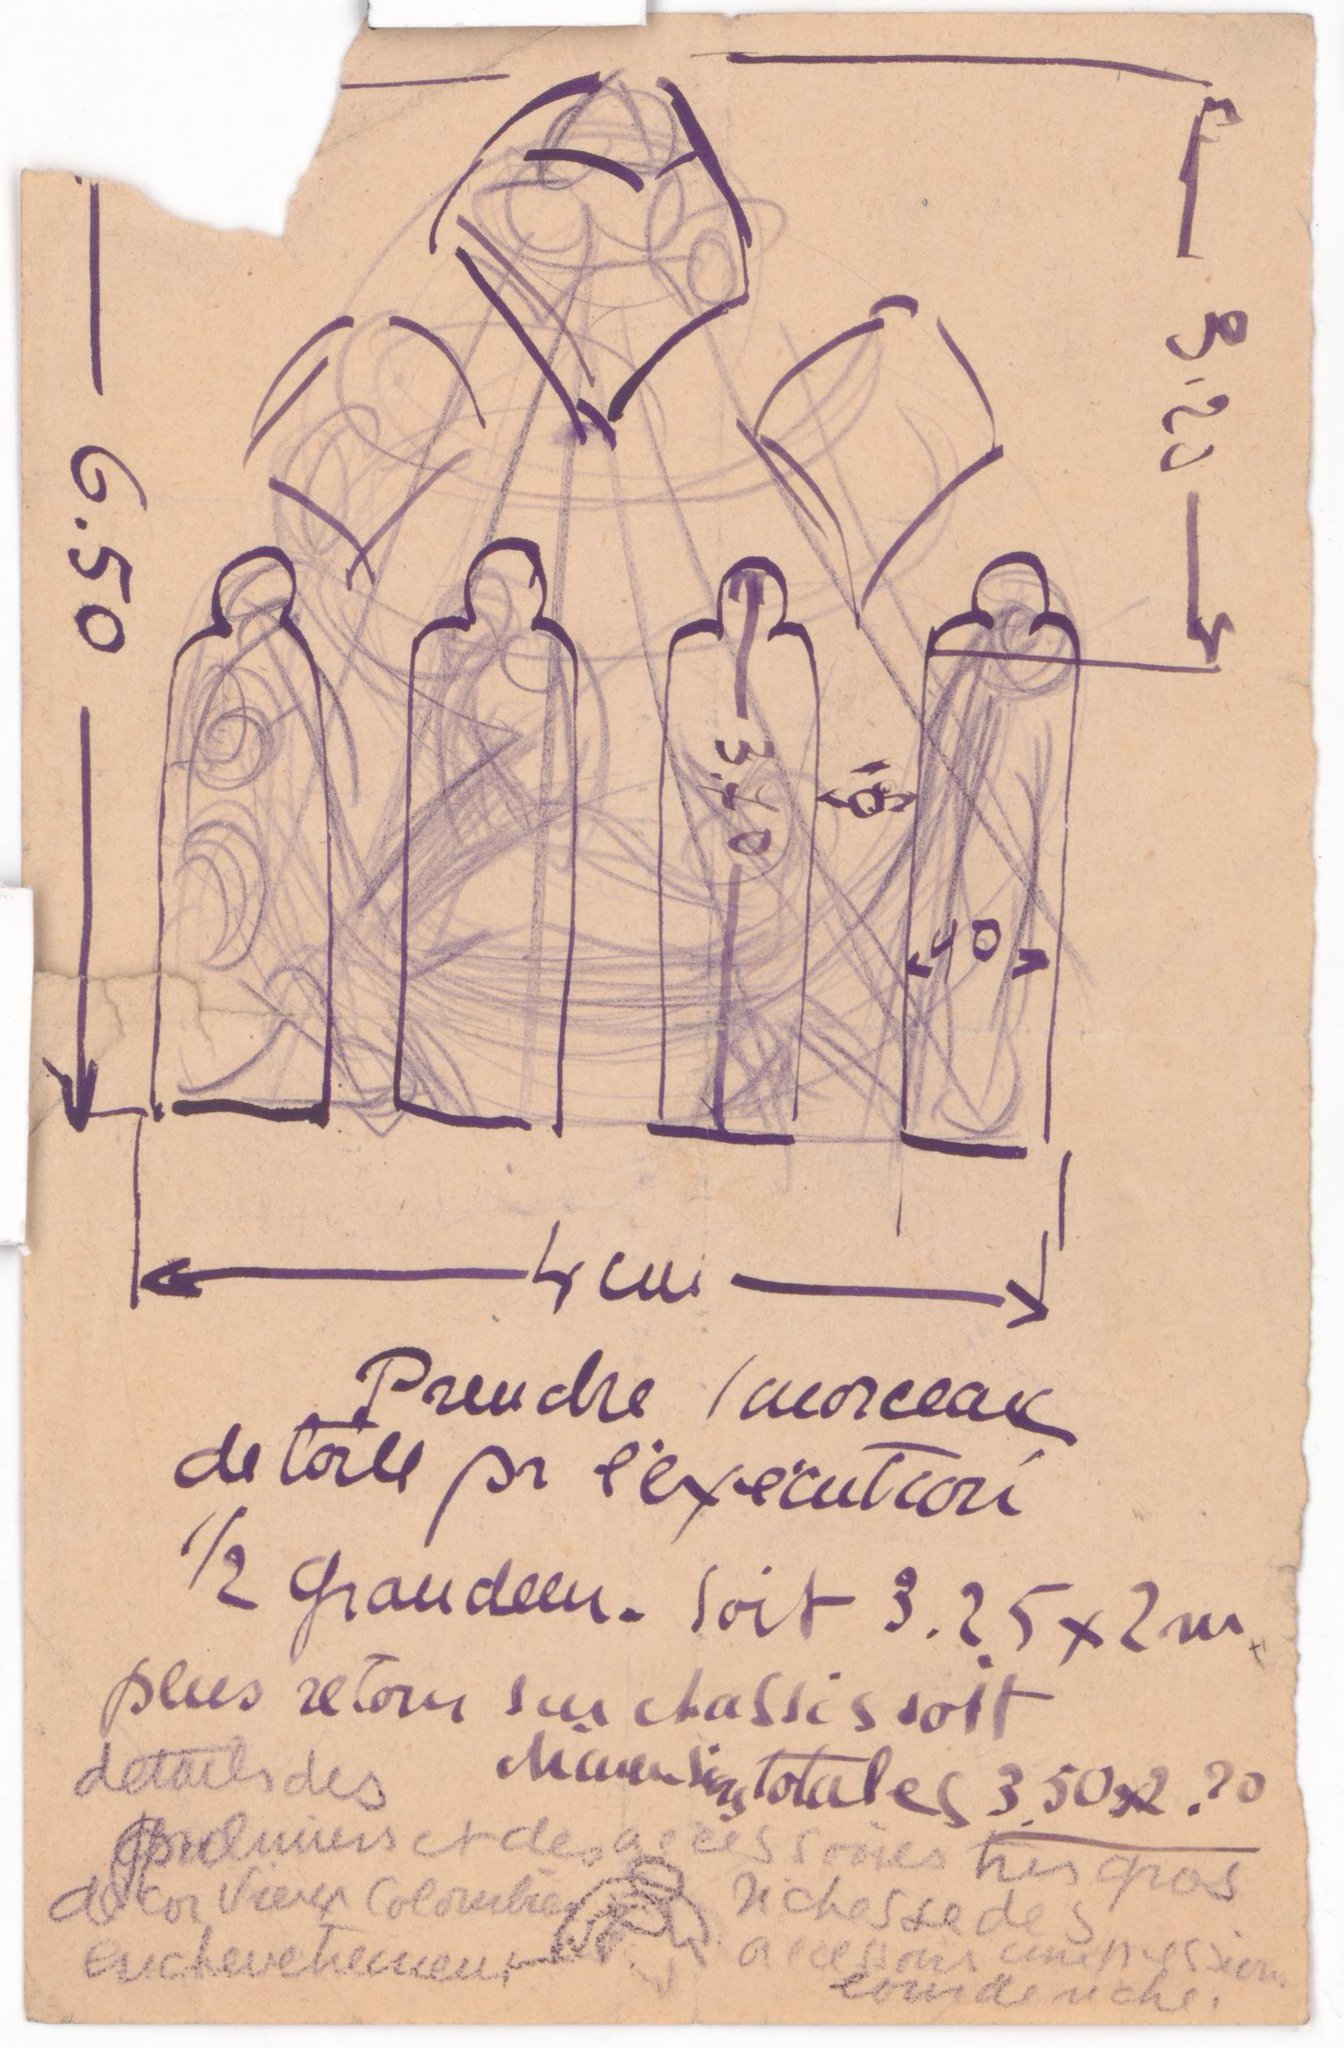 6.50
3.20
3.40
40
4 m
Prendre 1 morceau
de toile pr l'exécution
1/2 grandeur. soit 3.25 x 2 m
plus retour sur chassis soit
dimensions totales 3.50 x 2.20
details des
et des accessoires tres gros
decor vieux Colombier
enchevetrement
richesse des
accessoires impression
riche.